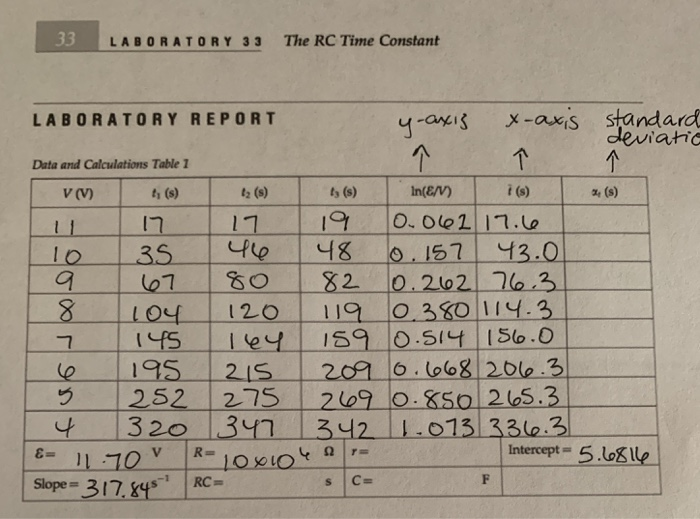 33 LABORATORY 33 The RC Time Constant
LABORATORY REPORT y-axis x-axis standard
deviatio
↑ ↑ ↑
Data and Calculations Table 1
V (V) t₁ (s) t₂ (s) t₃ (s) ln(ε/V) t̄ (s) αₜ (s)
11 17 17 19 0.062 17.6
10 35 46 48 0.157 43.0
9 67 80 82 0.262 76.3
8 104 120 119 0.380 114.3
7 145 164 159 0.514 156.0
6 195 215 209 0.668 206.3
5 252 275 269 0.850 265.3
4 320 347 342 1.073 336.3
ε= 11.70 V R= 10x10⁴ Ω r= Intercept= 5.6816
Slope= 317.84 s⁻¹ RC= s C= F